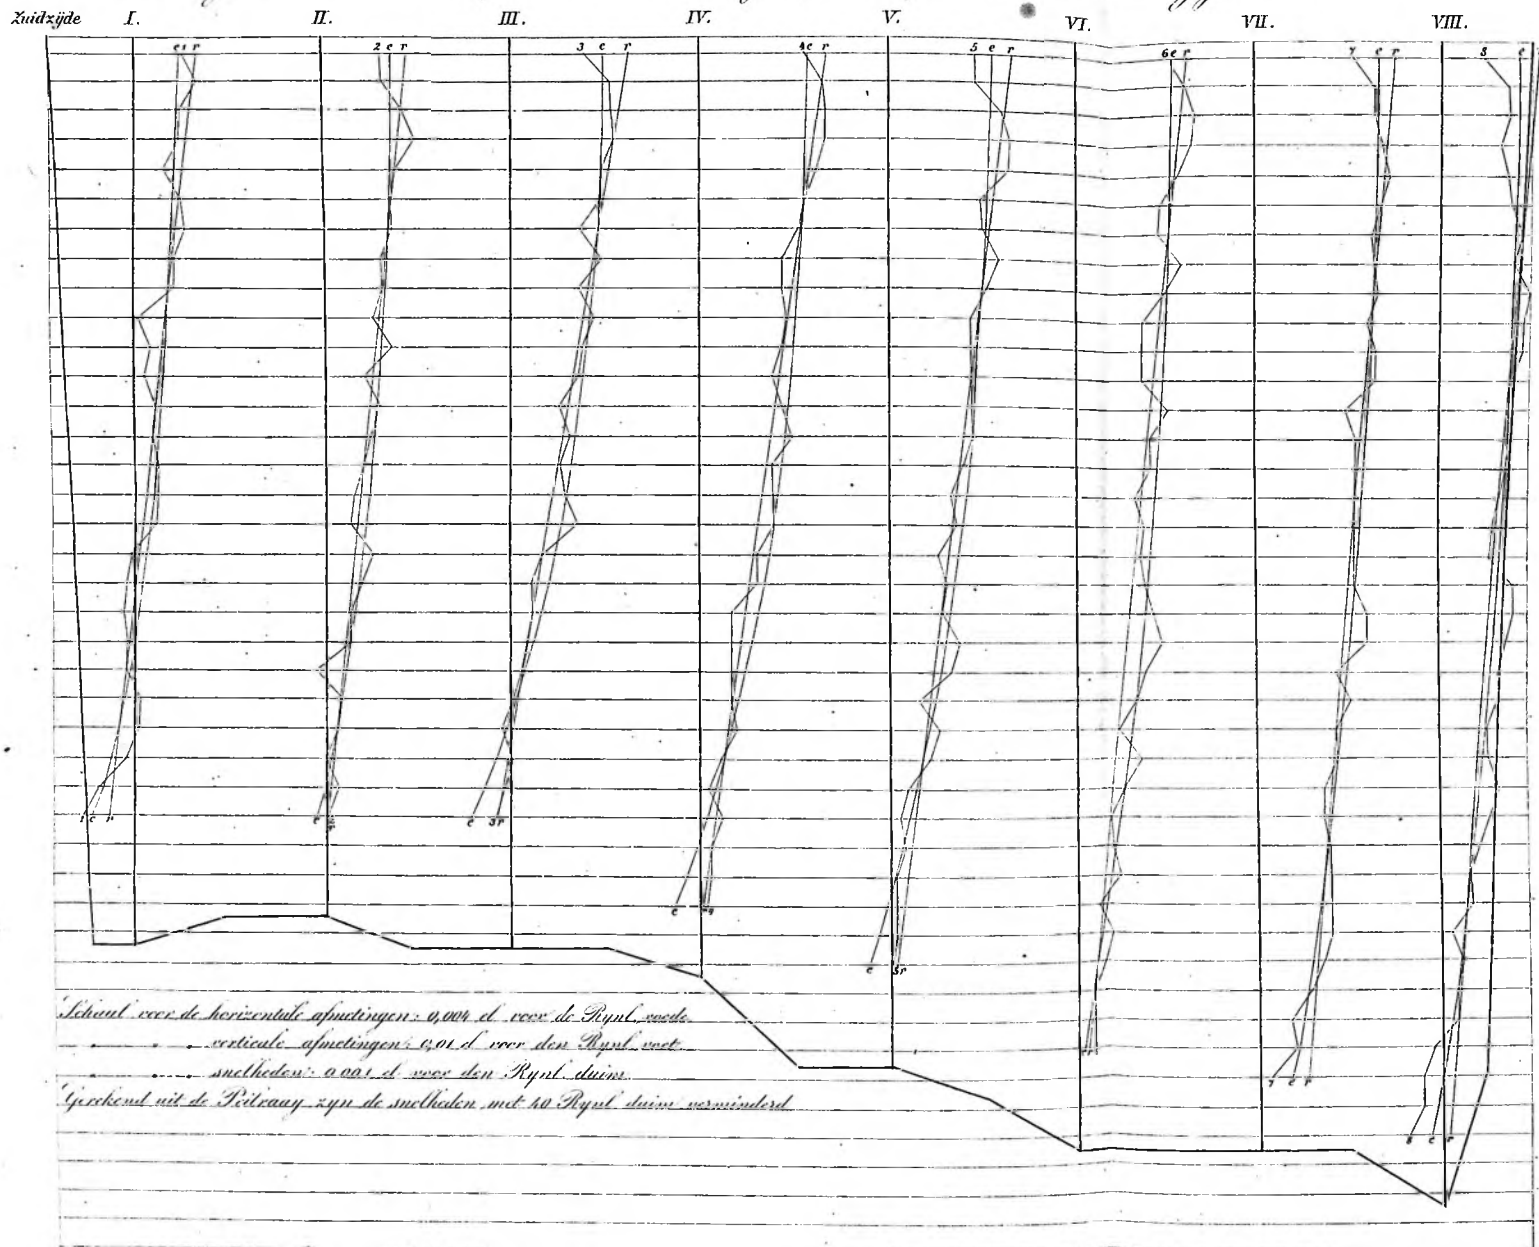 Zuidzijde I. II. III. IV. V. VI. VII. VIII.
e 1 r 2 e r 3 e r 4 e r 5 e r 6 e r 7 e r 8 e
1 e r e r e 3 r
e r 4
e 5 r
7 e r
8 e r
Schaal voor de horizontale afmetingen: 0,004 el voor de Rynl. voede
" " " verticale afmetingen: 0,01 el voor den Rynl. voet
" " " snelheden: 0.001 el voor den Rynl. duim
Gerekend uit de Peilraay zyn de snelheden met 40 Rynl duim verminderd